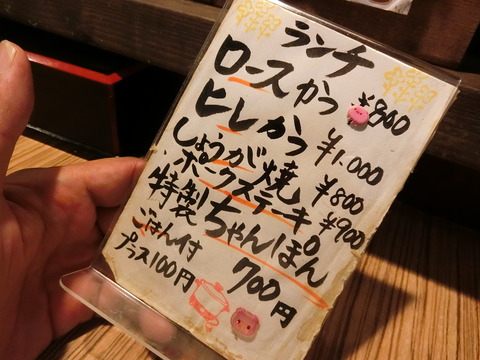 ランチ
ロースかつ ¥800
ヒレかつ ¥1.000
しょうが焼 ¥800
ポークステーキ ¥900
特製ちゃんぽん
700円
ごはん付
プラス100円